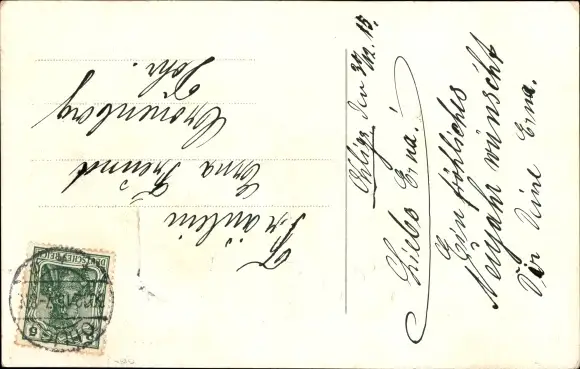 Ohligs den 30/12. 15.
Liebe Erna!
Ein fröhliches
Neujahr wünscht
Dir Deine Erna.
Fräulein
Erna Freund
Cronenberg
DEUTSCHES REICH
5